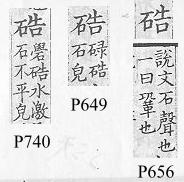 硞
礐硞水激
石不平皃
P740
硞
碌硞
石皃
P649
硞
說文石聲也
一曰鞏也
P656